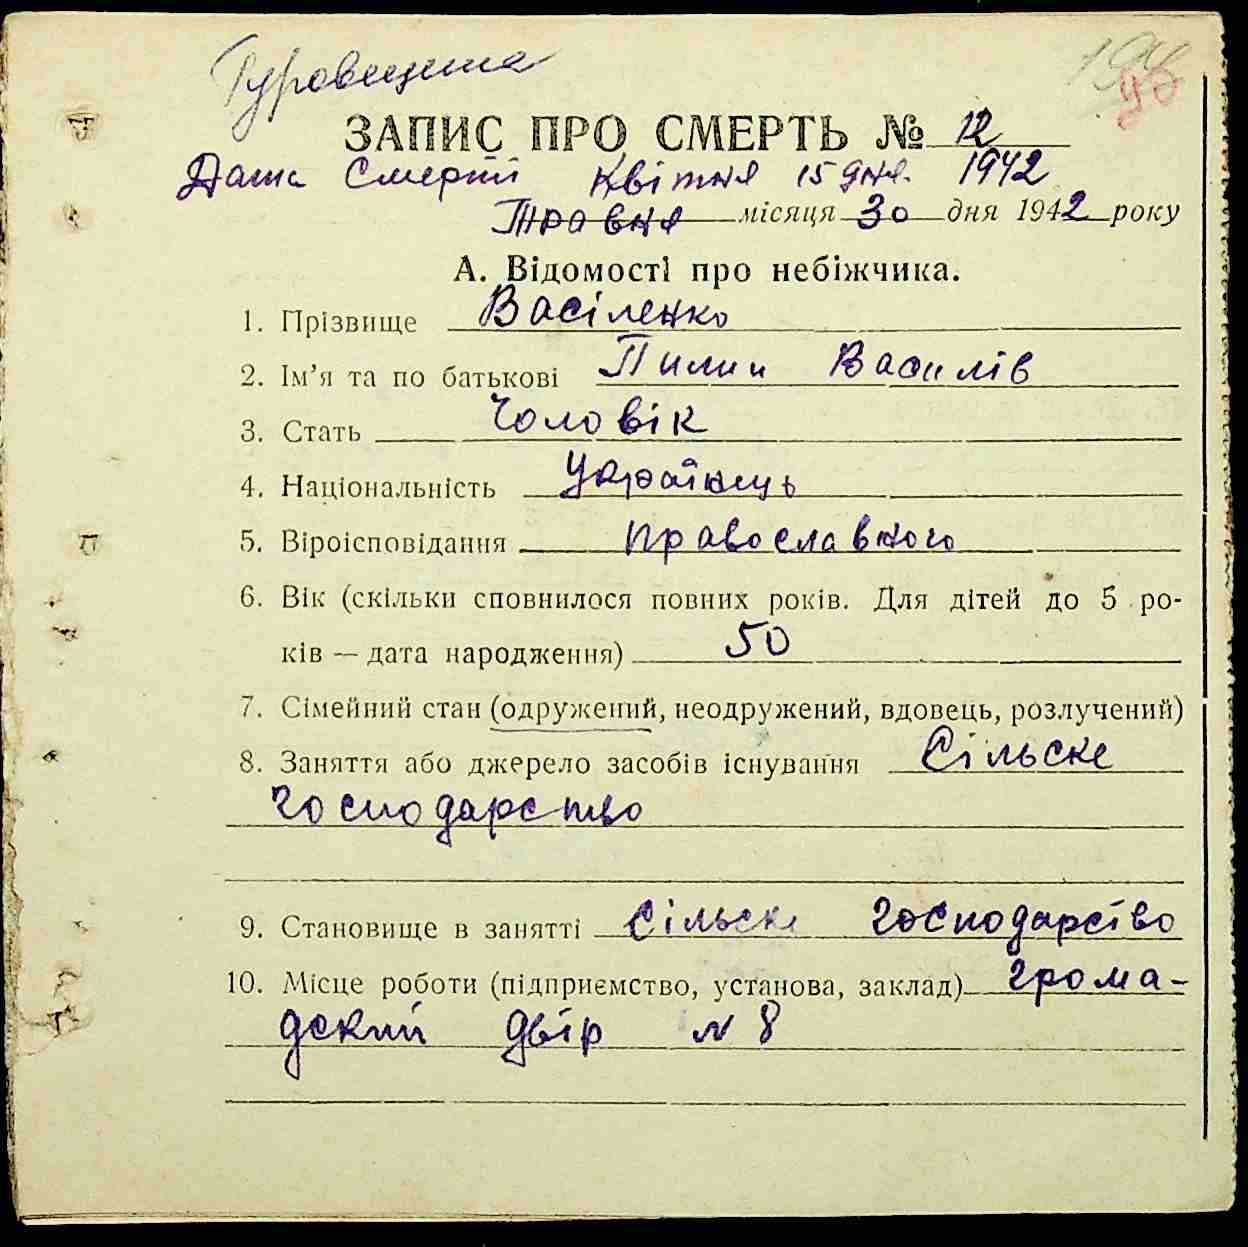 Туровщина
ЗАПИС ПРО СМЕРТЬ № 12
Дата Смерті Квітня 15 дня. 1942
Травня місяця 30 дня 1942 року
А. Відомості про небіжчика.
1. Прізвище Васіленко
2. Ім’я та по батькові Пилип Василів
3. Стать Чоловік
4. Національність Українець
5. Віроісповідання православного
6. Вік (скільки сповнилося повних років. Для дітей до 5 ро-
ків — дата народження) 50
7. Сімейний стан (одружений, неодружений, вдовець, розлучений)
8. Заняття або джерело засобів існування Сільске
господарство
9. Становище в занятті Сільске господарство
10. Місце роботи (підприємство, установа, заклад) грома-
дский двір N 8